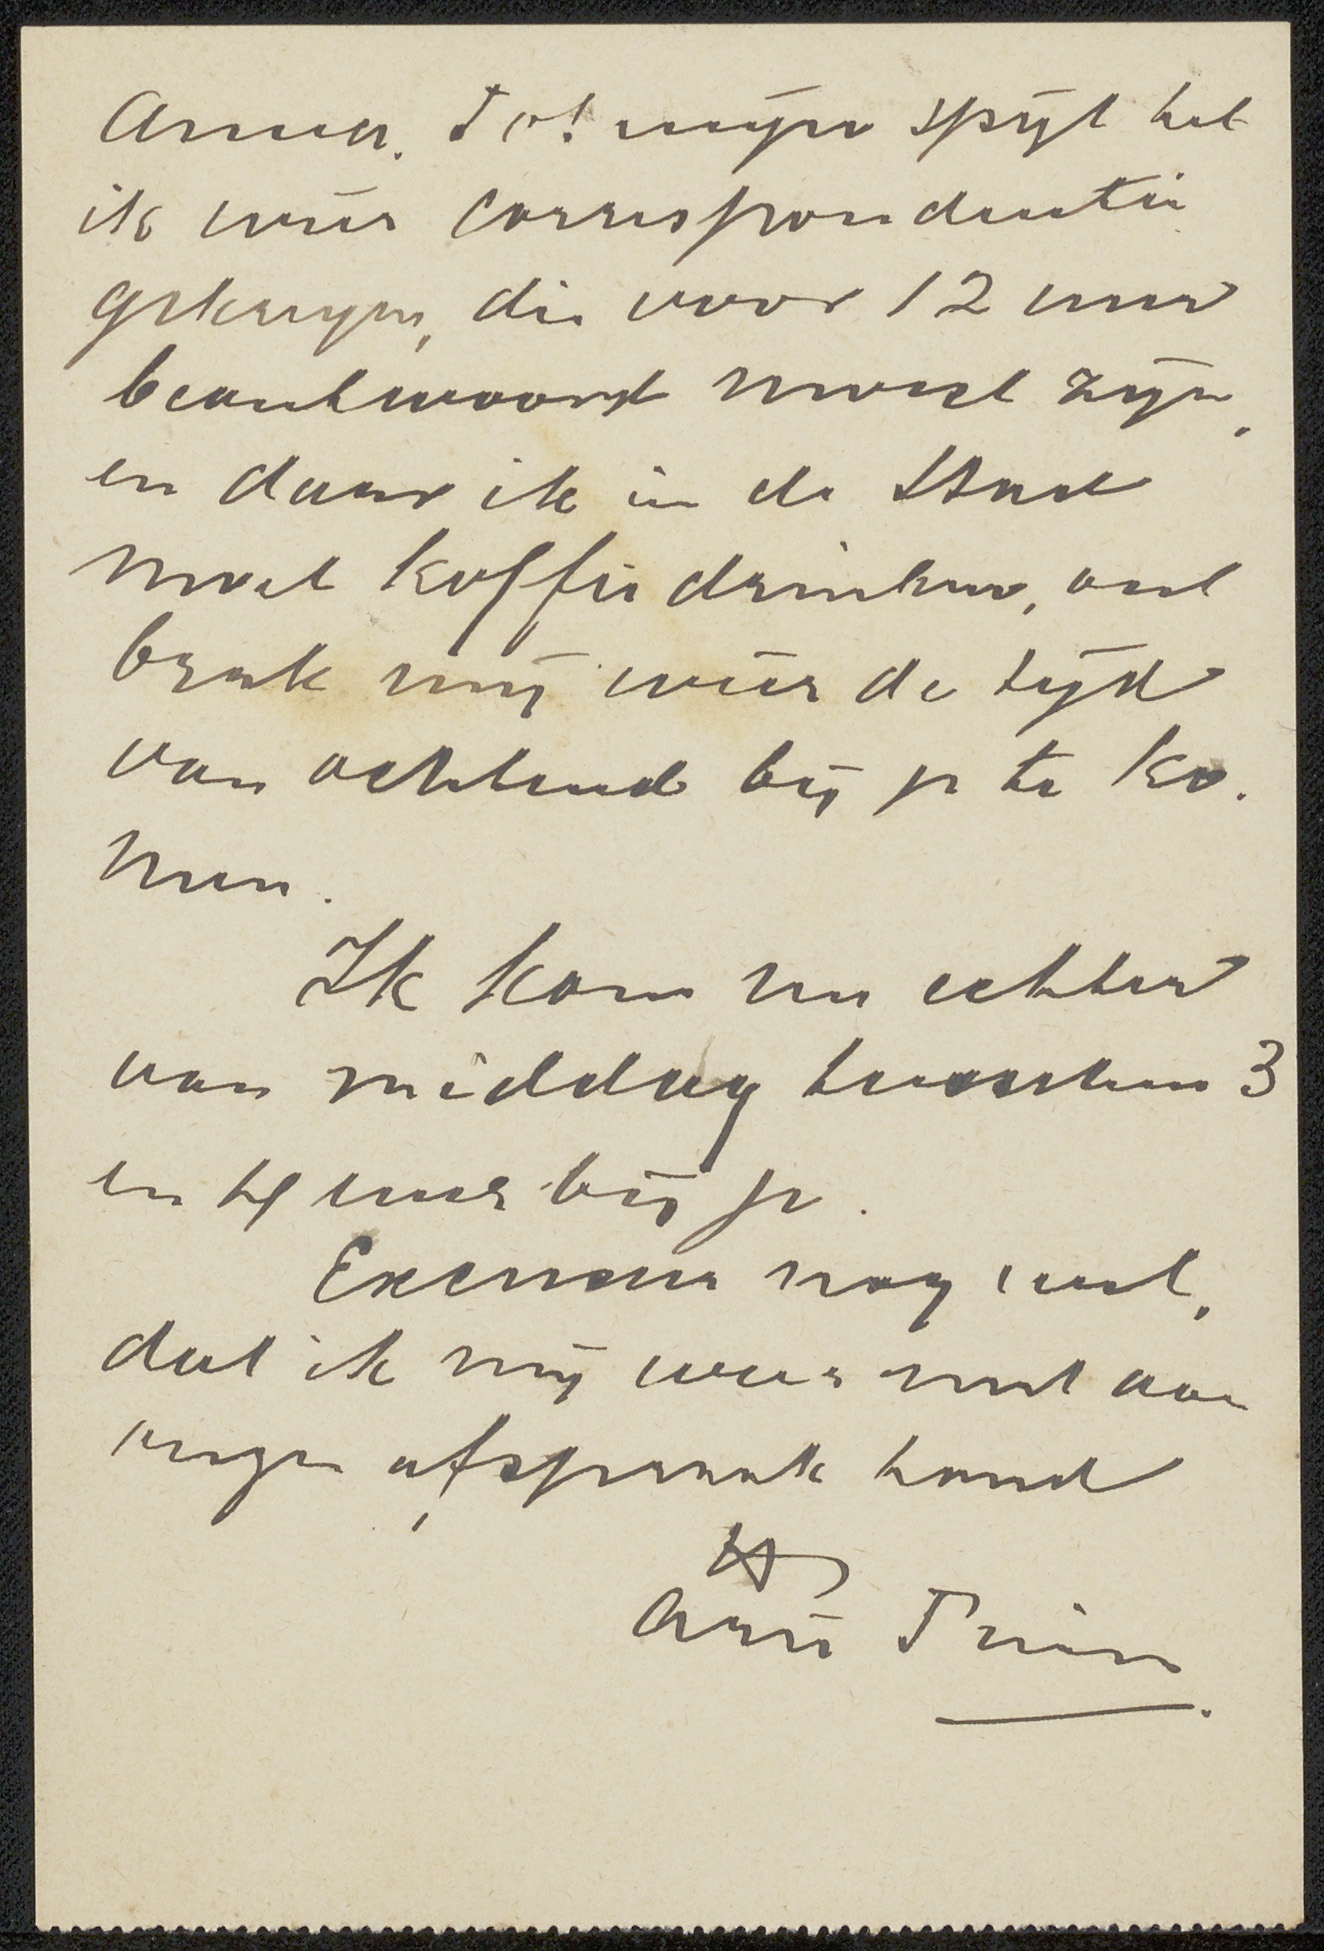 Anna. Tot mijn spijt heb
ik weer correspondentie
gekregen, die voor 12 uur
beantwoord moest zijn,
en daar ik in de stad
moet koffiedrinken, ont
brak mij weer de tijd
van ochtend bij je te ko.
men.
Ik kom nu echter
van middag tusschen 3
en 4 uur bij je.
Excuseer nog wel,
dat ik mij weer niet aan
afspraak houd
Arij Prins.